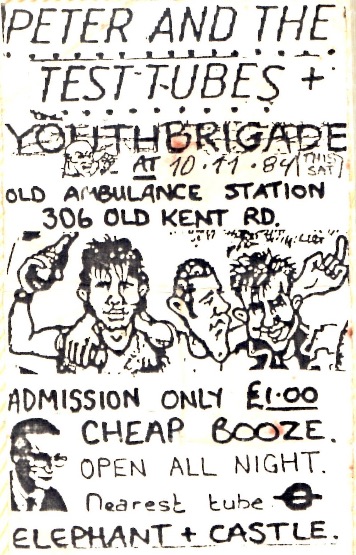 PETER AND THE
TEST TUBES +
YOUTHBRIGADE
AT 10·11·84 (THIS SAT)
OLD AMBULANCE STATION
306 OLD KENT RD.
ADMISSION ONLY £1·00
CHEAP BOOZE.
OPEN ALL NIGHT.
nearest tube
ELEPHANT + CASTLE.